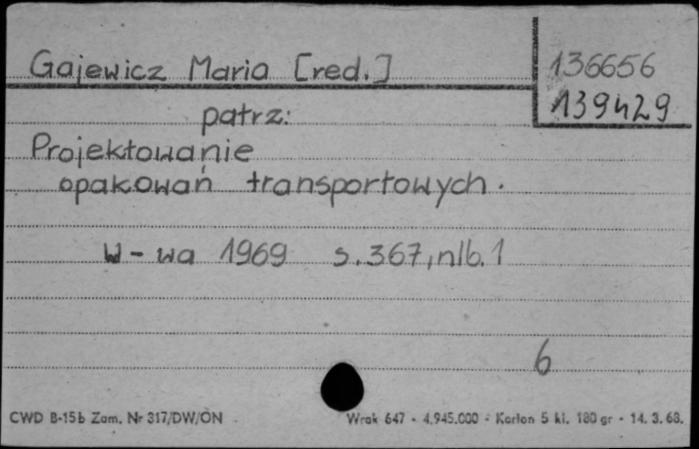 Gajewicz Maria [red.]
136656
139429
patrz:
Projektowanie
opakowań transportowych.
W-wa 1969 s.367,nlb.1
6
CWD B-15b Zam. Nr 317/DW/ON
Wrak 647 - 4.945.000 - Karton 5 kl. 180 gr - 14. 3. 68.